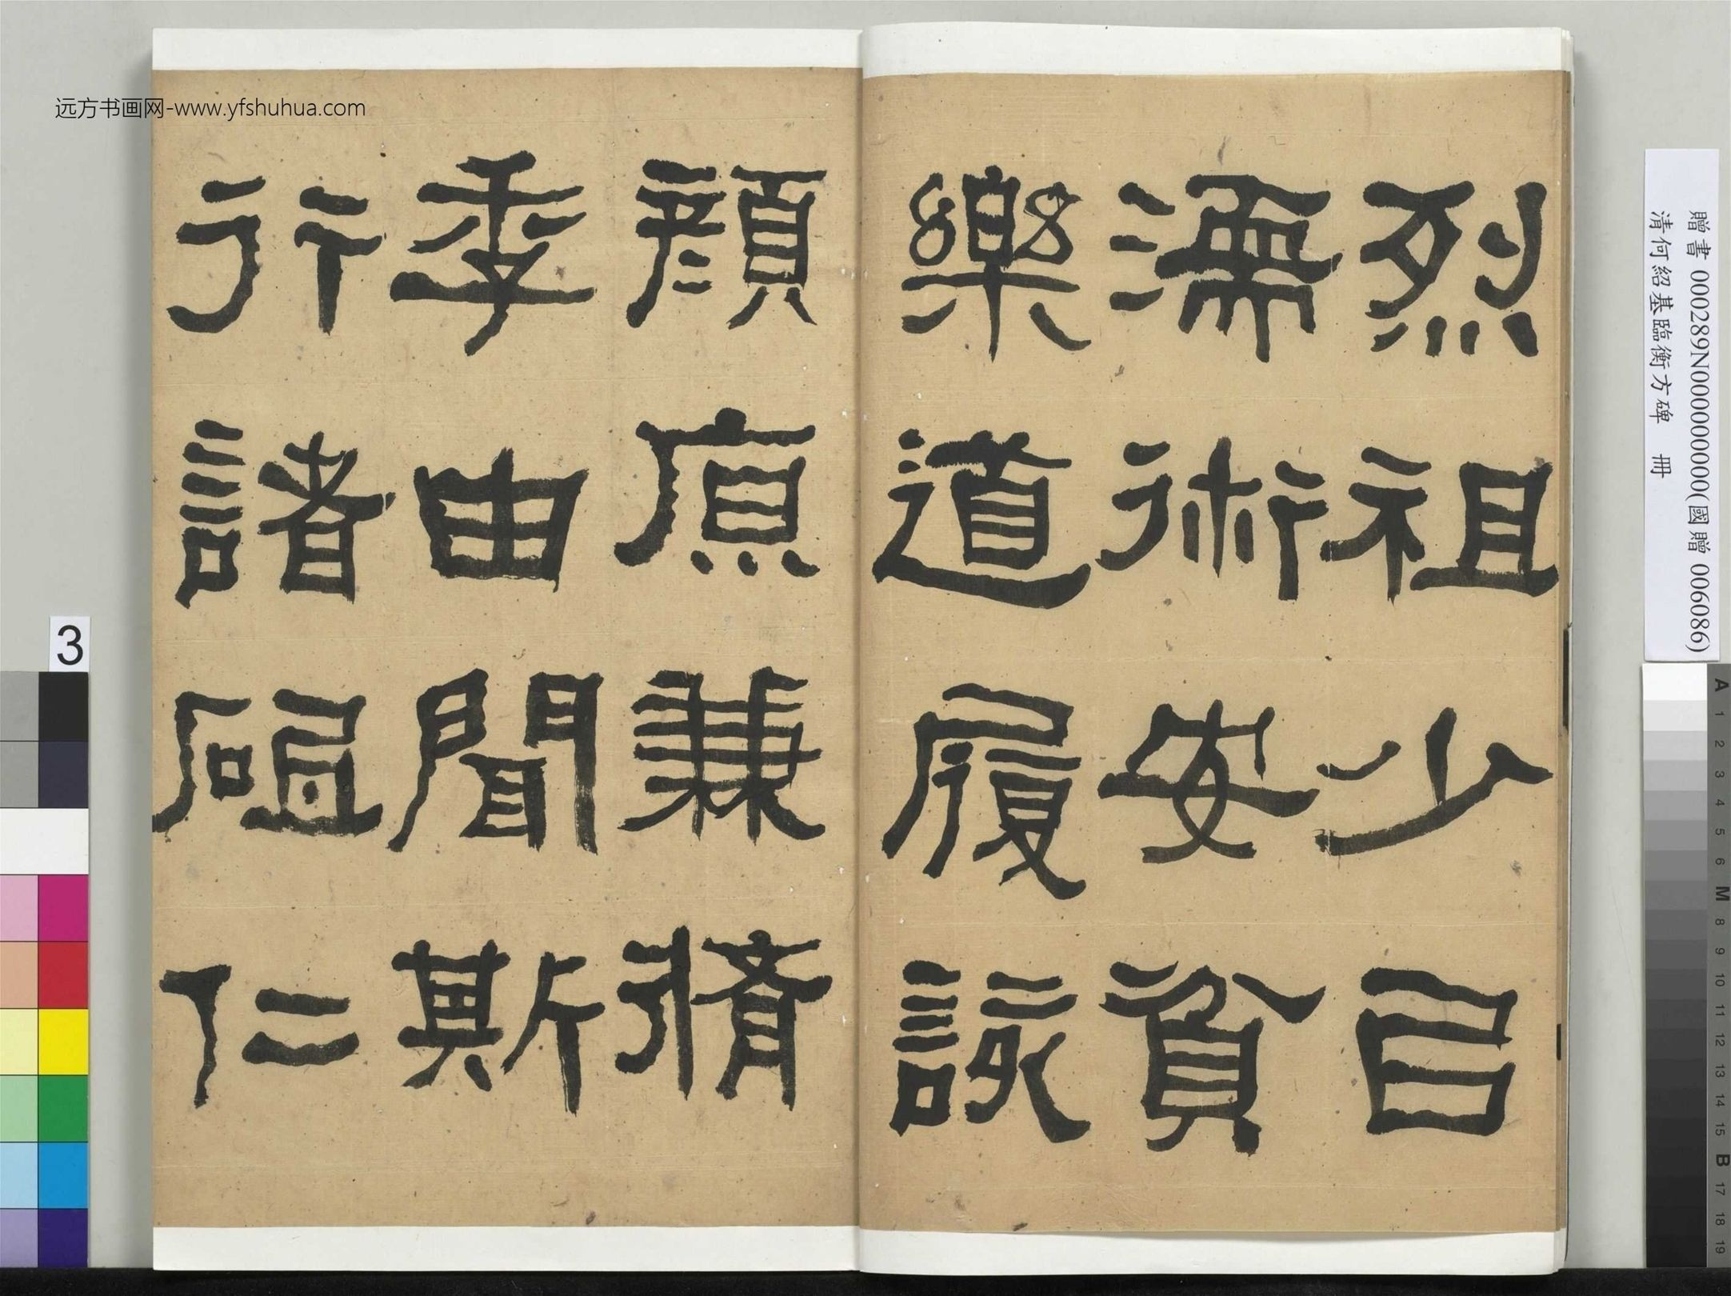 远方书画网-www.yfshuhua.com
烈祖少㠯
濡術安貧
樂道履該
顏原兼脩
季由聞斯
行諸砥仁
贈書 000289N000000000(國贈 006086)
清何紹基臨衡方碑 冊
3
A 1 2 3 4 5 6 M 8 9 10 11 12 13 14 15 B 17 18 19